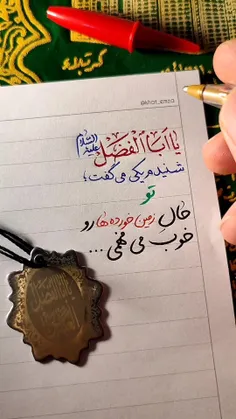 کربلاء
@khat_enza
یا اَبَاالفَضلْ علیه السلام
شنیدم یکی می گفت؛
تو
حالِ زمین خورده ها رو
خوب می فهمی ...